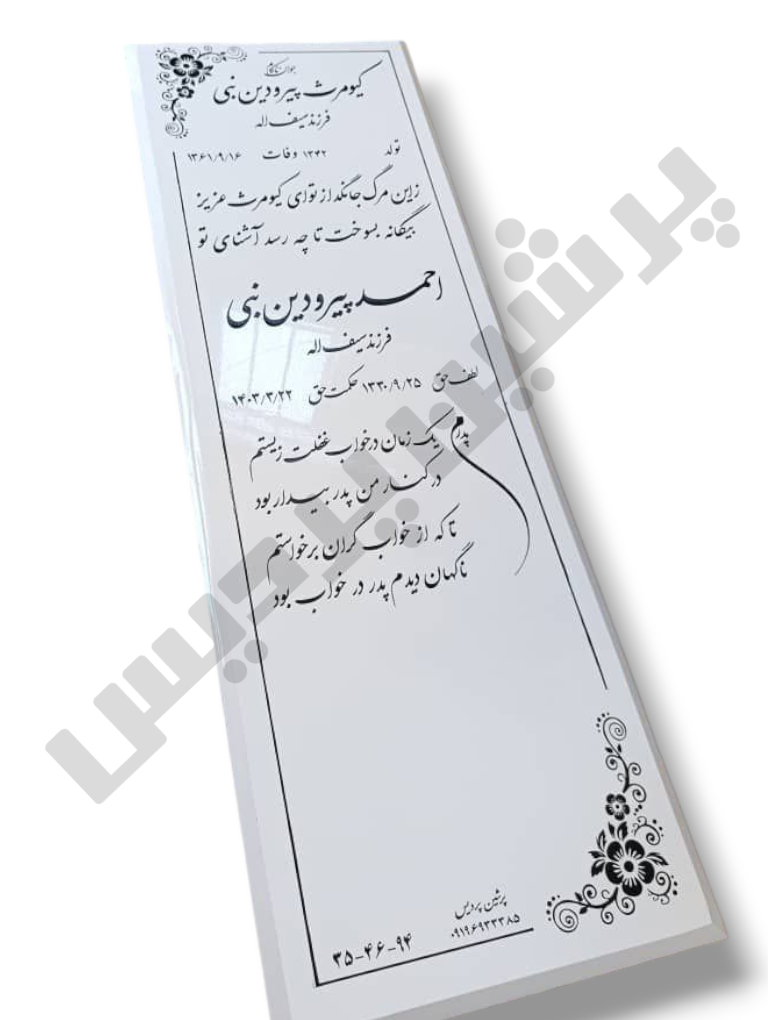 جوان ناکام
کیومرث پیرودین نبی
فرزند سیف اله
تولد ۱۳۴۲ وفات ۱۳۶۱/۹/۱۶
زاین مرگ جانگداز توای کیومرث عزیز
بیگانه بسوخت تا چه رسد آشنای تو
احمد پیرودین نبی
فرزند سیف اله
لطف حق ۱۳۳۰/۹/۲۵ حکمت حق ۱۴۰۳/۳/۲۲
پدرم یک زمان درخواب غفلت زیستم
درکنار من پدر بیدار بود
تا که از خواب گران برخواستم
ناگهان دیدم پدر در خواب بود
پرشین پردیس
۰۹۱۹۶۹۳۳۳۸۵
۳۵-۴۶-۹۴
پرشین پردیس